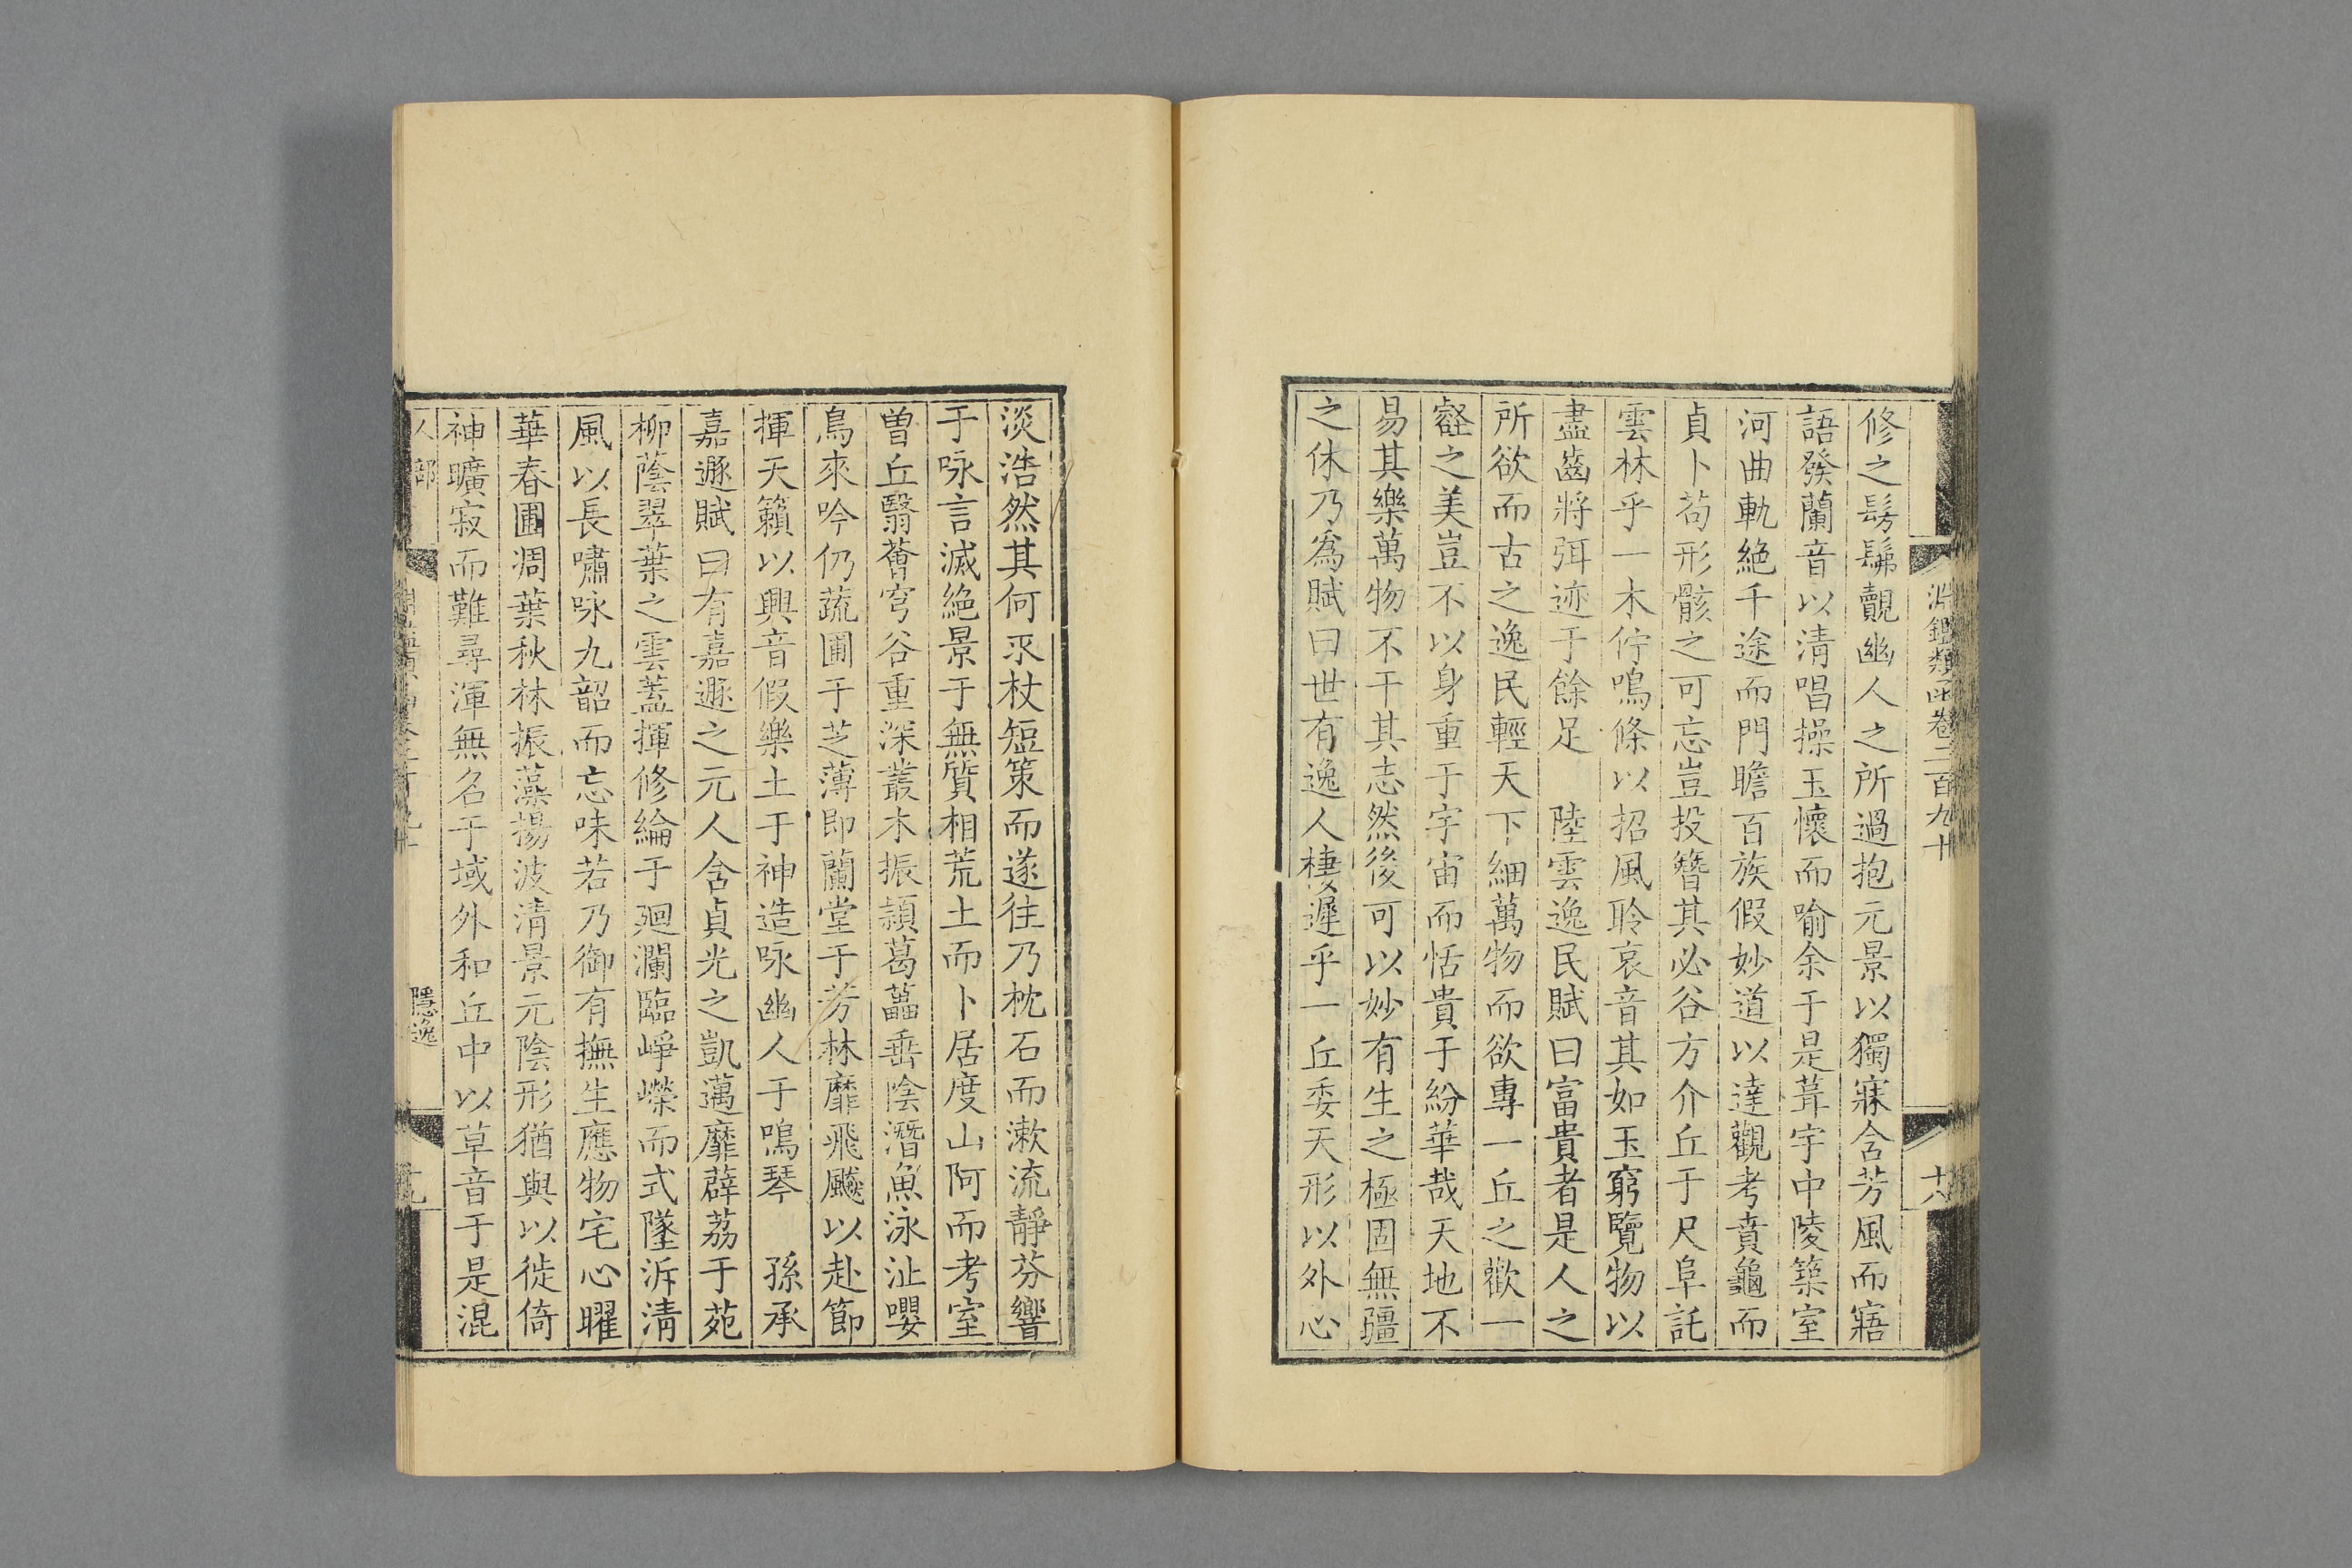 淵鑑類函卷二百九十
十八
修之髣髴覿幽人之所過抱元景以獨寐含芳風而寤
語發蘭音以清唱操玉懷而喻余于是葺宇中陵築室
河曲軌絕千途而門瞻百族假妙道以達觀考賁龜而
貞卜苟形骸之可忘豈投簪其必谷方介丘于尺阜託
雲林乎一木佇鳴條以招風聆哀音其如玉窮覽物以
盡齒將弭迹于餘足　陸雲逸民賦曰富貴者是人之
所欲而古之逸民輕天下細萬物而欲專一丘之歡一
壑之美豈不以身重于宇宙而恬貴于紛華哉天地不
易其樂萬物不干其志然後可以妙有生之極固無疆
之休乃為賦曰世有逸人棲遲乎一丘委天形以外心
淡浩然其何求杖短策而遂往乃枕石而漱流靜芬響
于咏言滅絕景于無質相荒土而卜居度山阿而考室
曽丘翳薈穹谷重深叢木振穎葛藟垂陰潛魚泳沚嚶
鳥來吟仍蔬圃于芝薄即蘭堂于芳林靡飛飈以赴節
揮天籟以興音假樂土于神造咏幽人于鳴琴　孫承
嘉遯賦曰有嘉遯之元人含貞光之凱邁靡薜荔于苑
柳蔭翠葉之雲蓋揮修綸于廻瀾臨崢嶸而式墜泝清
風以長嘯咏九韶而忘味若乃御有撫生應物宅心曜
華春圃凋葉秋林振藻揚波清景元陰形猶與以徙倚
神曠寂而難尋渾無名于域外和丘中以草音于是混
人部
隱逸